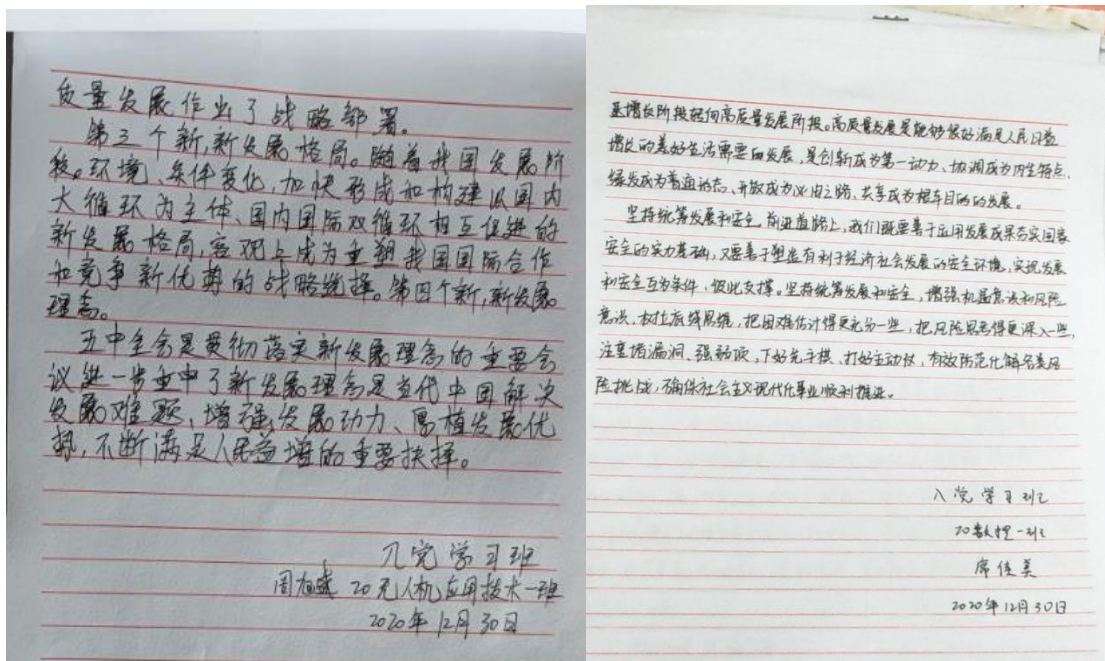 质量发展作出了战略部署。
第三个新,新发展格局。随着我国发展阶
段。环境、条件变化,加快形成和构建以国内
大循环为主体、国内国际双循环相互促进的
新发展格局,客观上成为重塑我国国际合作
和竞争新优势的战略选择。第四个新,新发展
理念。
五中全会是贯彻落实新发展理念的重要会
议进一步重申了新发展理念是当代中国解决
发展难题、增强发展动力、厚植发展优
势,不断满足人民益增的重要抉择。
入党学习班
周旭 20无人机应用技术一班
2020年12月30日
速增长阶段转向高质量发展阶段。高质量发展是能够很好满足人民日益
增长的美好生活需要的发展,是创新成为第一动力、协调成为内生特点、
绿发成为普遍形态、开放成为必由之路、共享成为根本目的的发展。
坚持统筹发展和安全,前进道路上,我们既要善于运用发展成果夯实国家
安全的实力基础,又要善于塑造有利于经济社会发展的安全环境,实现发展
和安全互为条件,彼此支撑。坚持统筹发展和安全,增强机遇意识和风险
意识,树牢底线思维,把困难估计得更充分一些,把风险思考得更深入一些,
注重堵漏洞、强弱项,下好先手棋、打好主动仗,有效防范化解各类风
险挑战,确保社会主义现代化事业顺利推进。
入党学习班
20数控一班
席佳美
2020年12月30日